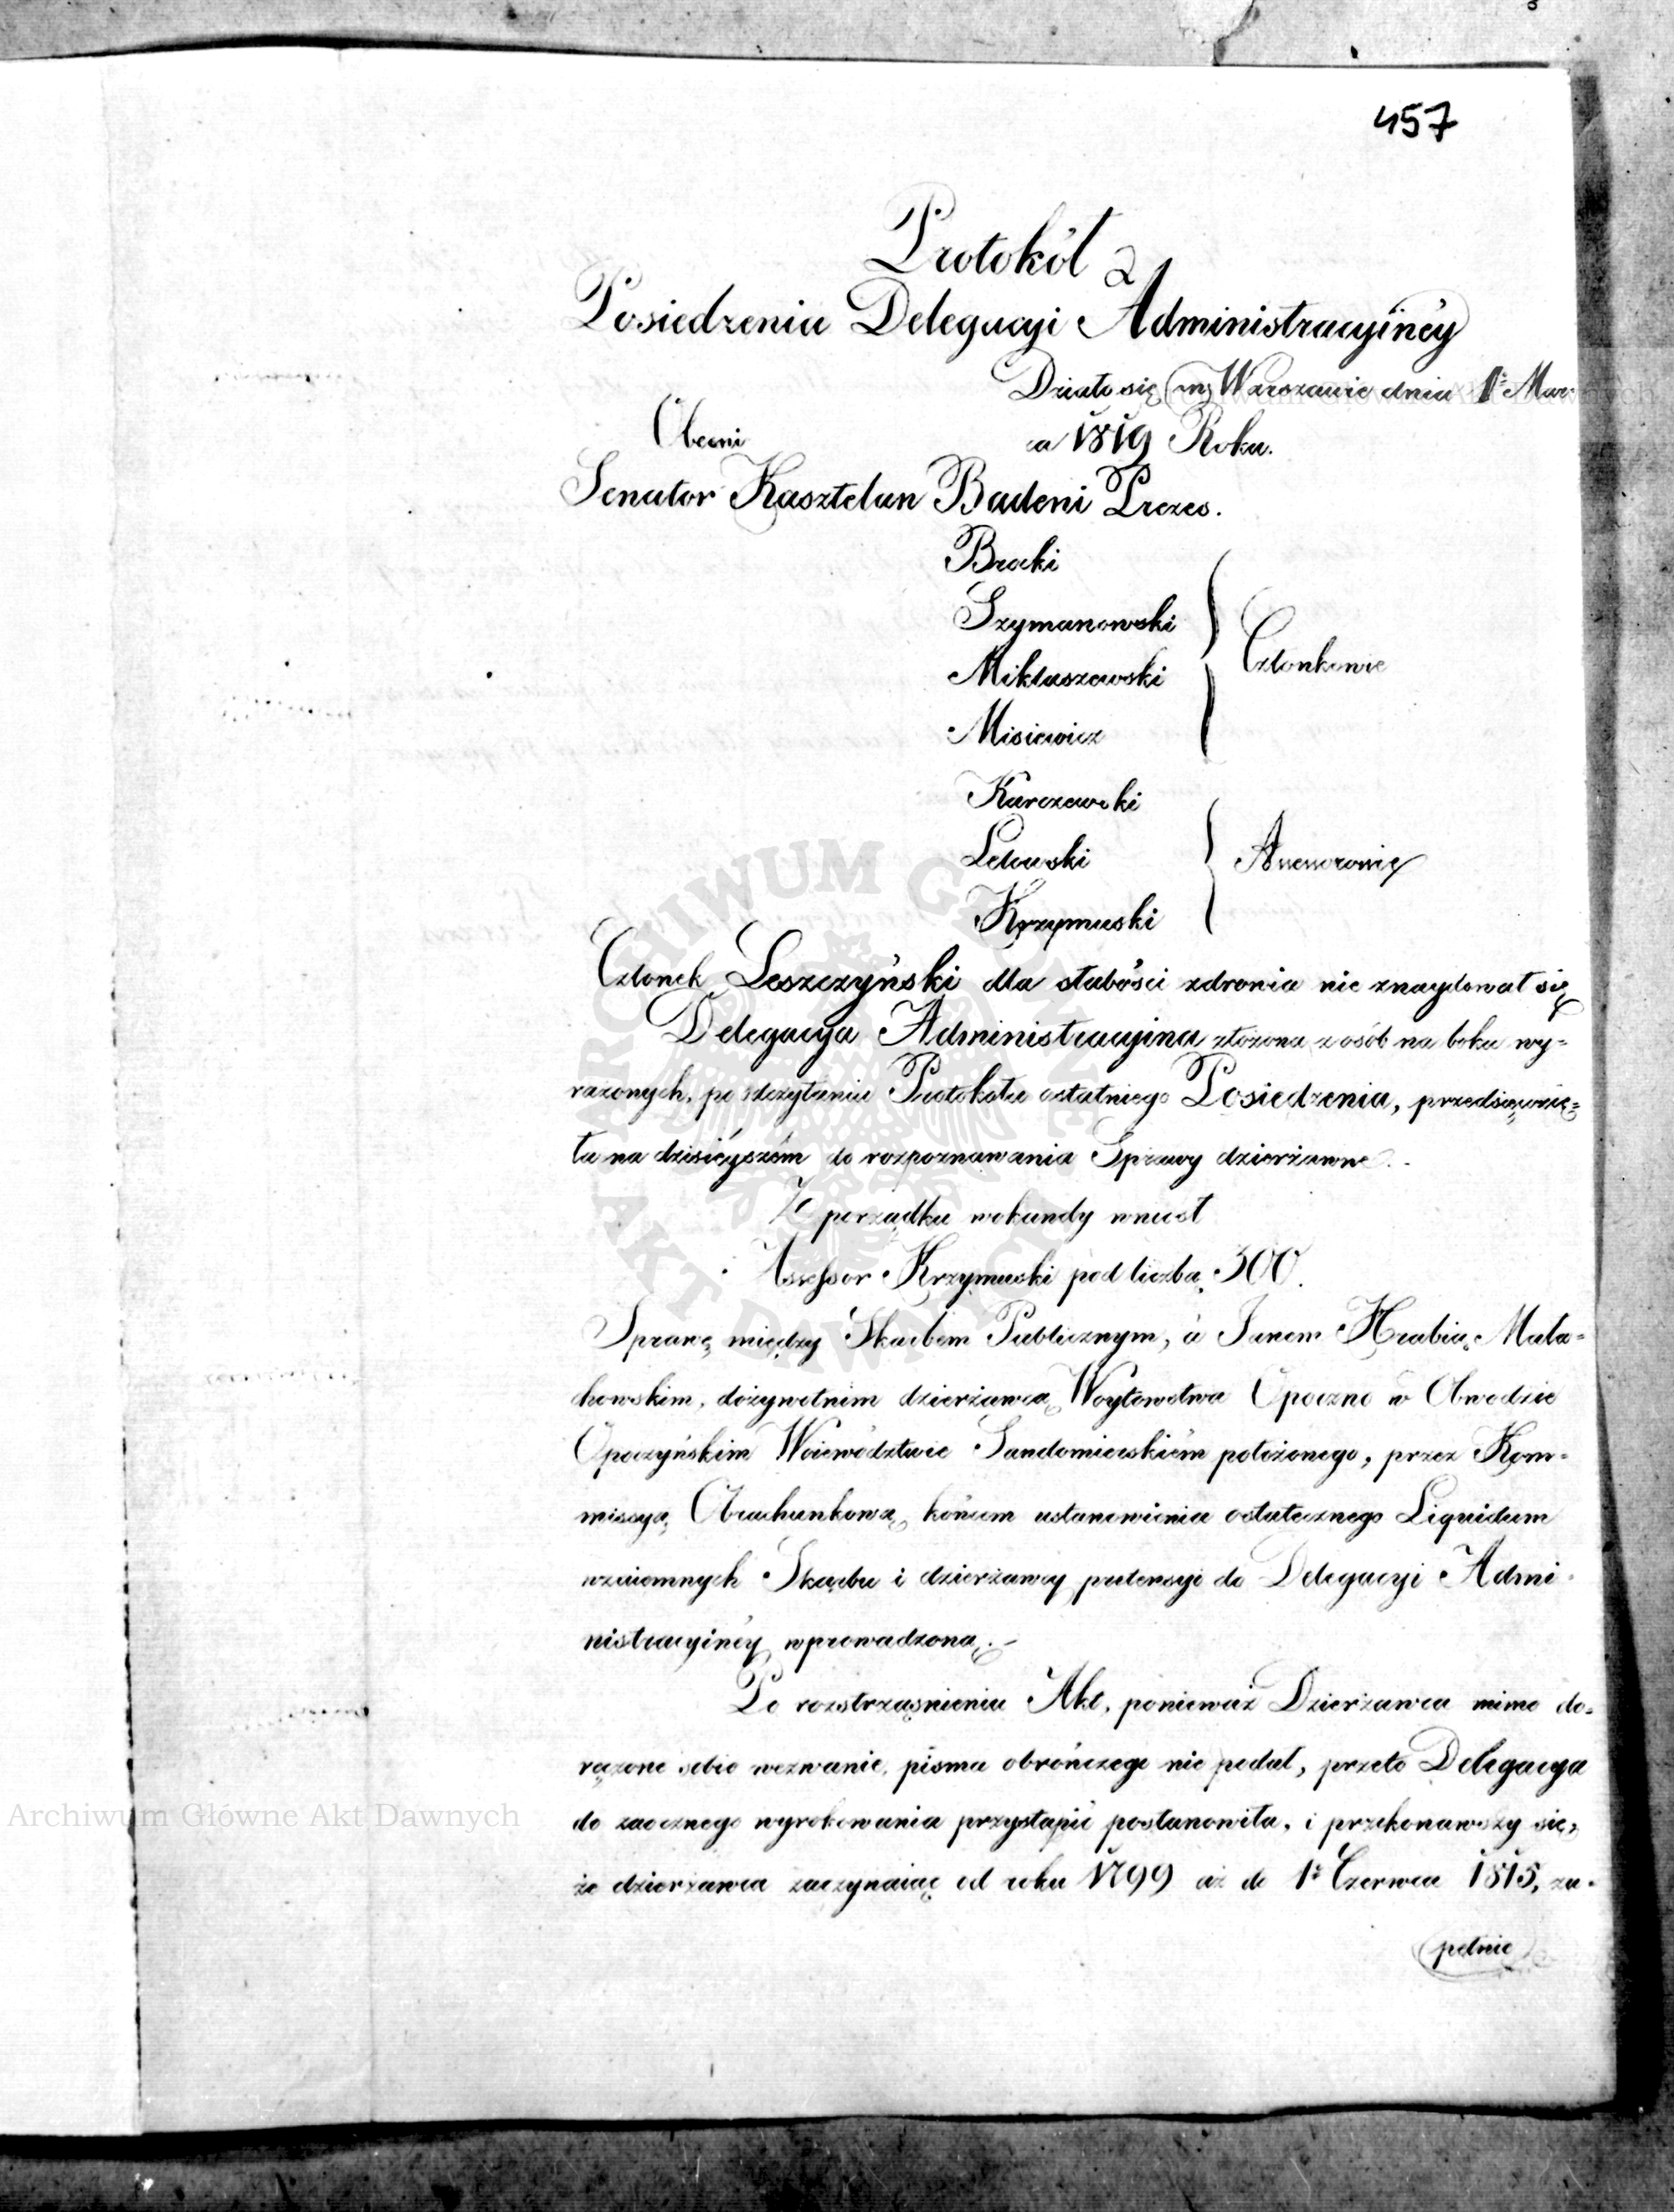 457
Protokół
z
Posiedzenia Delegacyi Administracyinéy
Działo się w Warszawie dnia 1º Mar-
ca 1819 Roku.
Obecni
Senator Kasztelan Badeni Prezes.
Brocki
Szymanowski
Mikłaszewski
Misiewicz
Członkowie
Karczewski
Letowski
Krzymuski
Assessorowie
Członek Leszczyński dla słabości zdrowia nie znaydował się
Delegacya Administracyina złożona z osób na boku wy=
rażonych, po odczytaniu Protokołu ostatniego Posiedzenia, przedsięwzię=
ła na dzisieyszém do rozpoznawania Sprawy dzierżawne.
Z porządku wokandy wniósł
Assessor Krzymuski pod liczbą 300.
Sprawę między Skarbem Publicznym, a Janem Hrabią Mała=
chowskim, dożywotnim dzierżawcą Woytowstwa Opoczno w Obwodzie
Opoczyńskim Woiewództwie Sandomierskiém położonego, przez Kom=
missyą Obrachunkową, końcem ustanowienia ostatecznego Liquidum
wzaiemnych Skarbu i dzierżawcy pretensyi do Delegacyi Admi-
nistracyinéy wprowadzoną.
Po rozstrząśnieniu Akt, ponieważ Dzierżawca mimo do=
ręczone sobie wezwanie, pisma obrończego nie podał, przeto Delegacya
do zaocznego wyrokowania przystąpić postanowiła, i przekonawszy się,
że dzierżawca zaczynaiąc od roku 1799 aż do 1º Czerwca 1815, zu-
pełnie
Archiwum Główne Akt Dawnych
ARCHIWUM GŁÓWNE AKT DAWNYCH